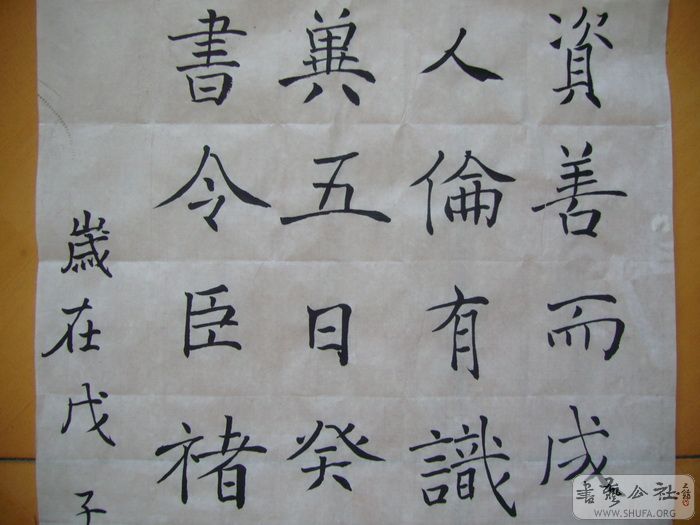 資善而成
人倫有識
五日癸
書令臣褚
歲在戊子
書藝公社
WWW.SHUFA.ORG